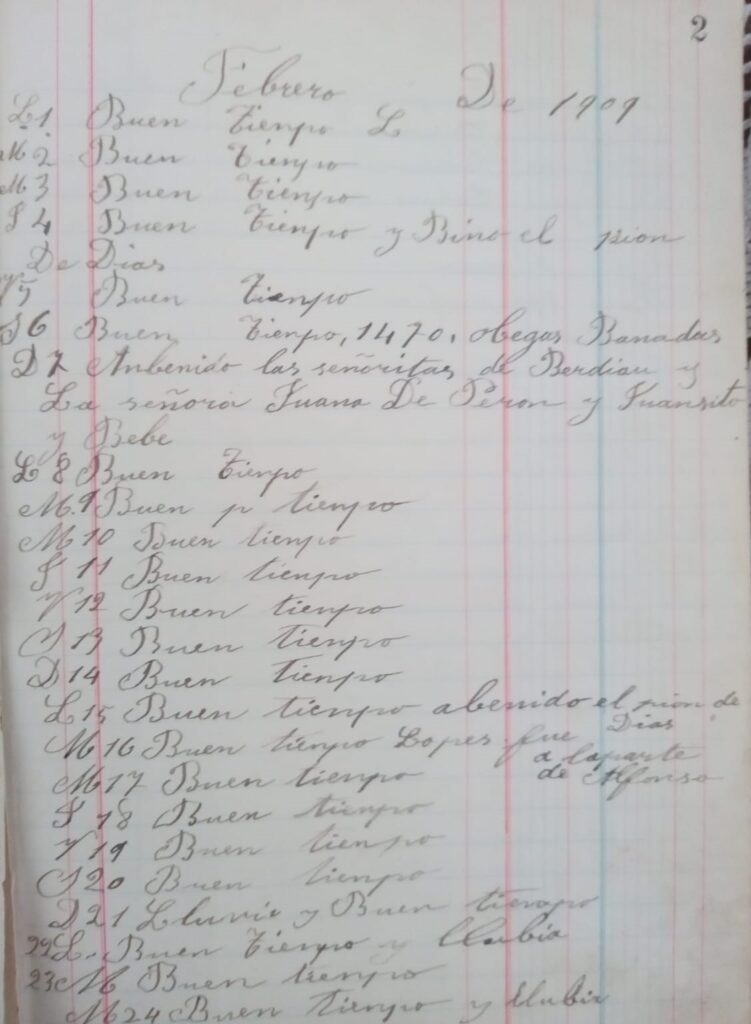 2
Febrero De 1909
L 1 Buen Tienpo L
M 2 Buen Tienpo
M 3 Buen Tienpo
J 4 Buen Tienpo y Bino el pion
De Dias
V 5 Buen Tienpo
S 6 Buen Tienpo, 1470, obegas Banadas
D 7 Anbenido las señoritas de Berdiau y
La señora Juana De Peron y Juansito
y Bebe
L 8 Buen Tienpo
M. 9 Buen p tienpo
M 10 Buen tienpo
J 11 Buen tienpo
V 12 Buen tienpo
S 13 Buen tienpo
D 14 Buen tienpo
L 15 Buen tienpo abenido el pion de
Dias
M 16 Buen tienpo Lopes fue
a laparte
de Alfonso
M 17 Buen tienpo
J 18 Buen tienpo
V 19 Buen tienpo
S 20 Buen tienpo
D 21 Lluvie y Buen tienpo
22 L. Buen Tienpo y llubia
23 M Buen tienpo
M 24 Buen tienpo y llubia